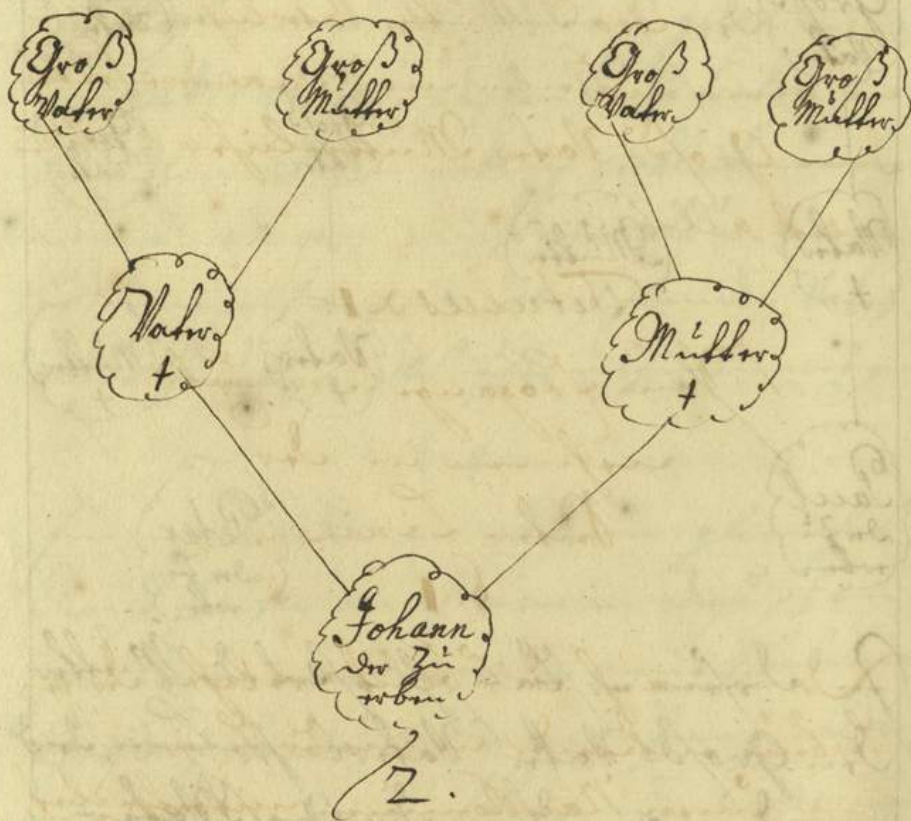 Groß
Vater
Groß
Mütter
Groß
Vater
Groß
Mütter
Vater
†
Mütter
†
Johann
der Zü
erben
2.